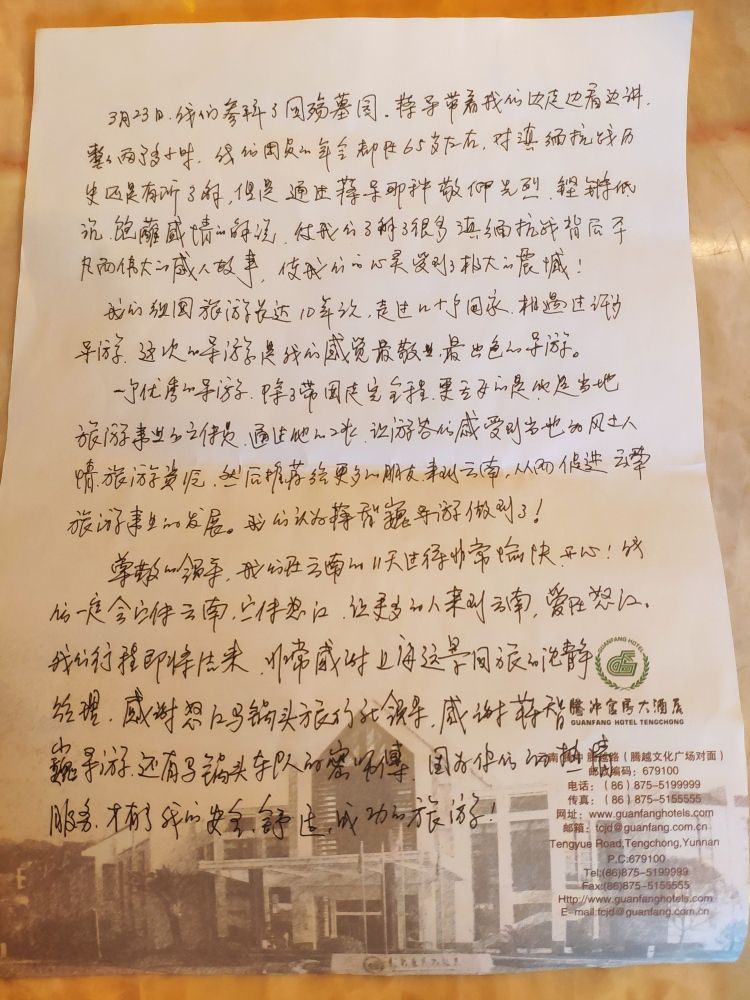 3月23日，我们参拜了国殇墓园。蒋导带着我们边走边看边讲，
整整两个多小时。我们团员的年令都在65岁左右，对滇缅抗战历
史还是有所了解，但是通过蒋导那种敬仰先烈、铿锵低
沉、饱蘸感情的解说，使我们了解了很多滇缅抗战背后平
凡而伟大的感人故事，使我们的心灵受到了极大的震憾！
我们组团旅游长达10年之久，走过几十个国家，相遇过许多
导游，这次的导游是我们感觉最敬业、最出色的导游。
一个优秀的导游，除了带团走完全程，更主要的是他是当地
旅游事业的宣传员，通过他的口水，让游客们感受到当地的风土人
情、旅游资源，然后推荐给更多的朋友来到云南，从而促进云南
旅游事业的发展。我们认为蒋智巍导游做到了！
尊敬的领导，我们在云南的11天过得非常愉快、开心！我
们一定会宣传云南，宣传怒江，让更多的人来到云南，爱在怒江。
我们行程即将结束，非常感谢上海远景国旅的沈静
经理，感谢怒江马锅头旅行社领导，感谢蒋智
巍导游，还有马锅头车队的密师傅，因为你们的热情
服务，才有了我们安全、舒适、成功的旅游！
GUANFANG HOTEL
腾冲官房大酒店
GUANFANG HOTEL TENGCHONG
云南腾冲腾越路（腾越文化广场对面）
邮政编码：679100
电话：（86）875-5199999
传真：（86）875-5155555
网址：www.guanfanghotels.com
邮箱：tcjd@guanfang.com.cn
Tengyue Road,Tengchong,Yunnan
P.C:679100
Tel:(86)875-5199999
Fax:(86)875-5155555
Http://www.guanfanghotels.com
E-mail:tcjd@guanfang.com.cn